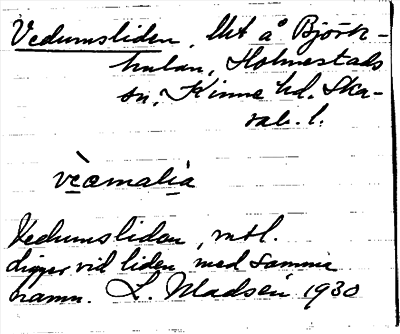 Vedumsliden, lht å Björk-
kulan, Holmestads
sn, Kinne hd. Ska-
rab. l.
vècmalia
Vedumslidan, mtl.
ligger vid liden med samma
namn. L. Madsén 1930